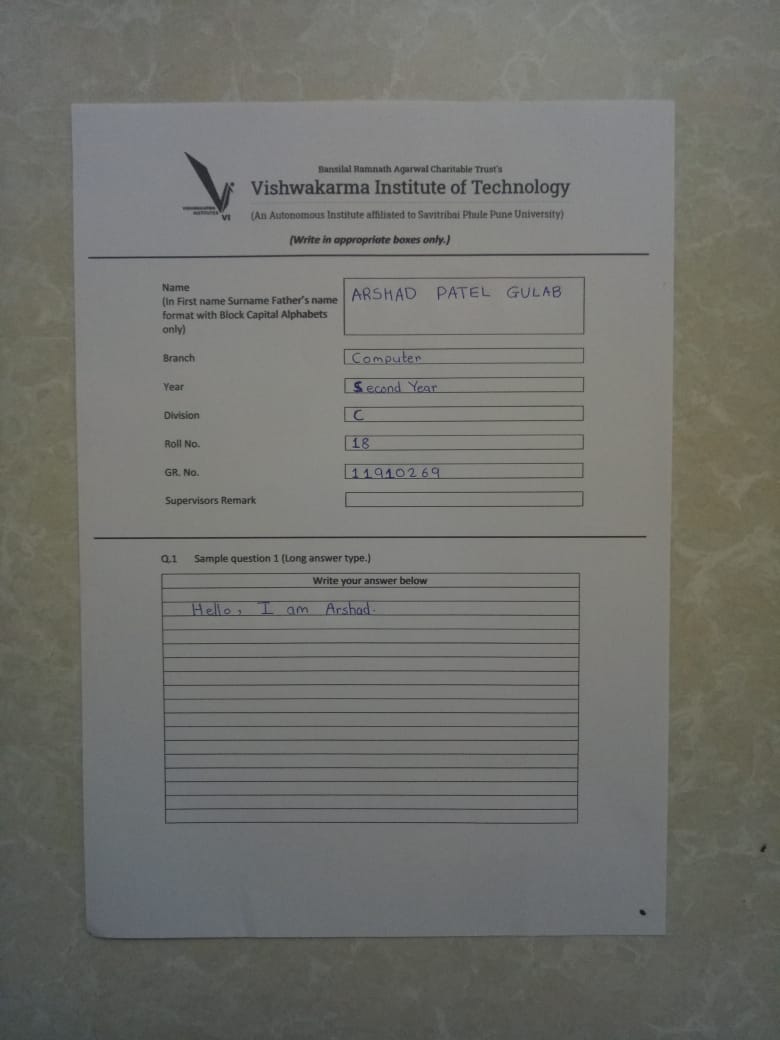 Bansilal Ramnath Agarwal Charitable Trust's
Vishwakarma Institute of Technology
(An Autonomous Institute affiliated to Savitribai Phule Pune University)
VISHWAKARMA
INSTITUTES
VI
(Write in appropriate boxes only.)
Name
(In First name Surname Father's name
format with Block Capital Alphabets
only)
ARSHAD PATEL GULAB
Branch Computer
Year Second Year
Division C
Roll No. 18
GR. No. 11910269
Supervisors Remark
Q.1 Sample question 1 (Long answer type.)
Write your answer below
Hello, I am Arshad.